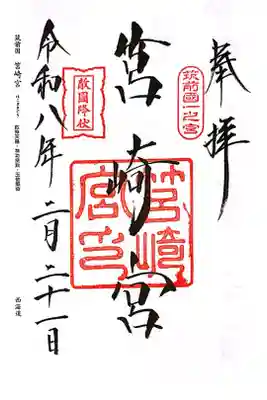 奉拝
筑前國一之宮
筥崎宮
筥崎宮印
敵國降伏
令和八年二月二十一日
筑前国 筥崎宮
西海道